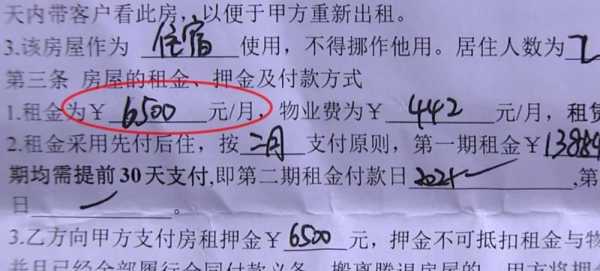 天内带客户看此房,以便于甲方重新出租。
3.该房屋作为 住宿 使用,不得挪作他用。居住人数为
第三条 房屋的租金、押金及付款方式
1.租金为¥ 6500 元/月,物业费为¥ 442 元/月,租赁
2.租金采用先付后住,按 二月 支付原则,第一期租金¥13884
期均需提前30天支付,即第二期租金付款日 2024 ,第
日 。
3.乙方向甲方支付房租押金¥ 6500 元,押金不可抵扣租金与物
并且已经全部履行合同付款义务,搬离腾退房屋的,甲方将押金